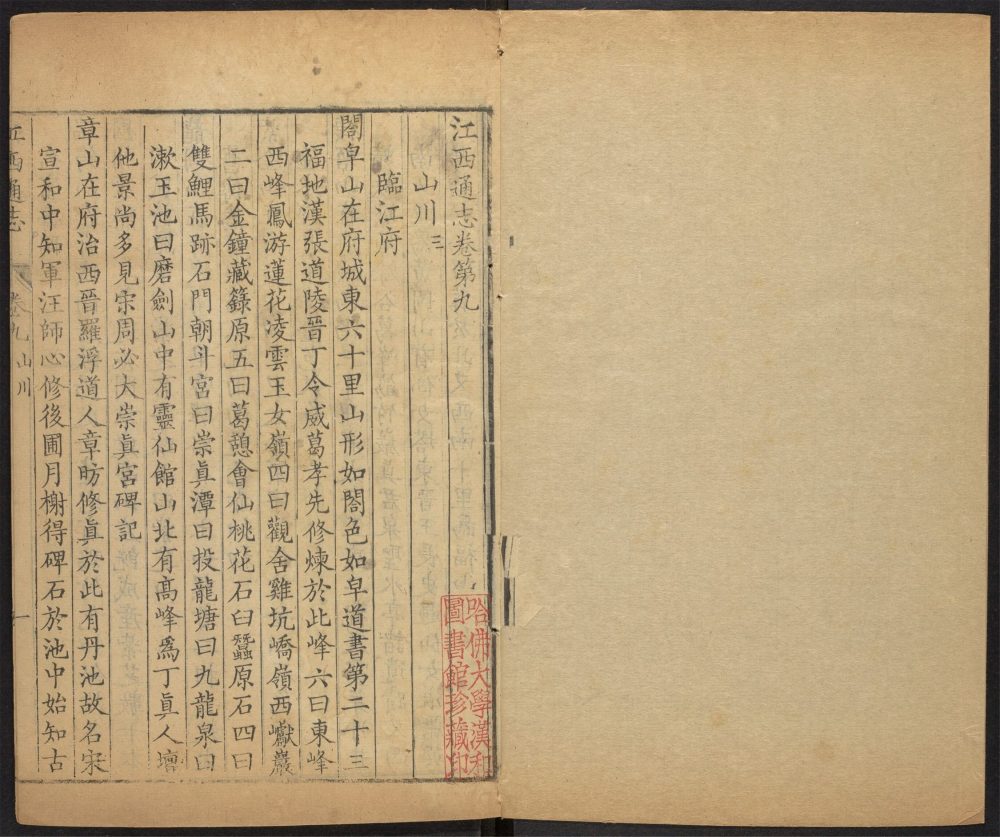 江西通志卷第九
山川三
臨江府
閤皁山在府城東六十里山形如閤色如皁道書第三十三
福地漢張道陵晉丁令威葛孝先修煉於此峰六曰東峰
西峰鳳游蓮花凌雲玉女嶺四曰觀舍雞坑嶠嶺西巘巖
二曰金鐘藏籙原五曰葛憩會仙桃花石臼蠶原石四曰
雙鯉馬跡石門朝斗宮曰崇眞潭曰投龍塘曰九龍泉曰
漱玉池曰磨劍山中有靈仙館山北有髙峰爲丁眞人壇
他景尚多見宋周必大崇眞宮碑記
章山在府治西晉羅浮道人章昉修眞於此有丹池故名宋
宣和中知軍汪師心修後圃月榭得碑石於池中始知古
江西通志
卷九 山川
一
哈佛大學漢和
圖書館珍藏印